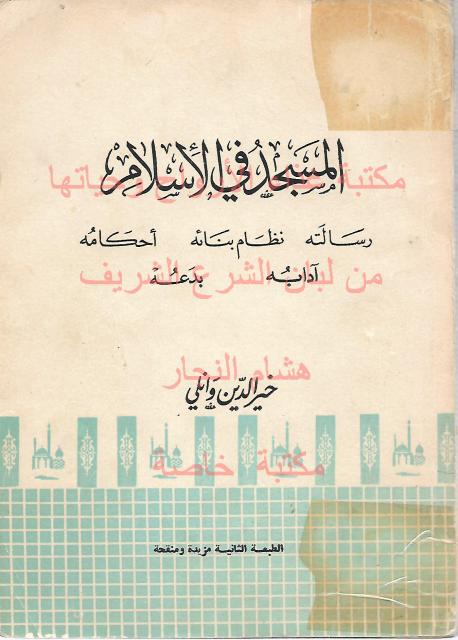 المسجد في الإسلام
مكتبة غذاء الأرواح وحياتها
رسالته نظام بنائه أحكامه
آدابه بدعه
من لبان الشرع الشريف
هشام النجار
خير الدين وانلي
مكتبة خاصة
الطبعة الثانية مزيدة ومنقحة